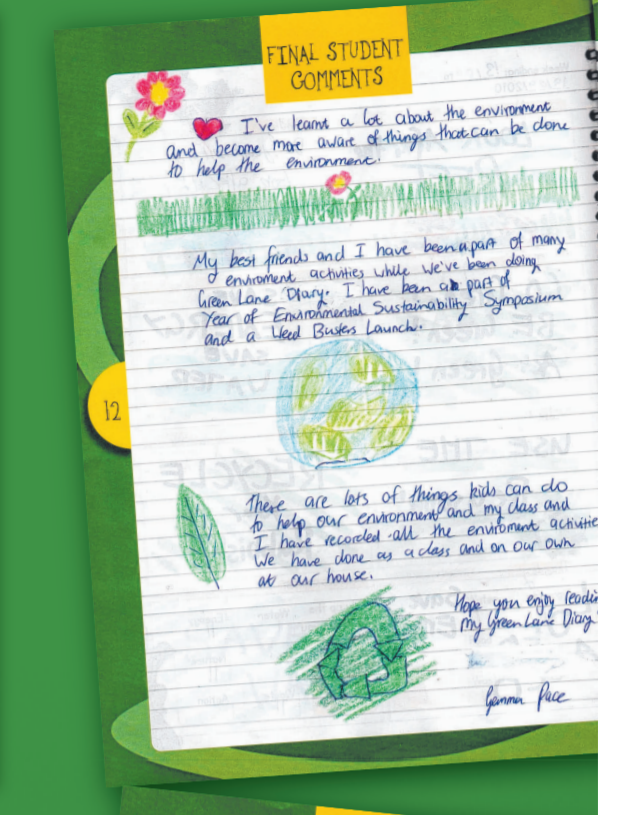 FINAL STUDENT
COMMENTS
I've learnt a lot about the environment
and become more aware of things that can be done
to help the environment.
My best friends and I have been a part of many
enviroment activities while we've been doing
Green Lane Diary. I have been a part of
Year of Environmental Sustainability Symposium
and a Weed Busters Launch.
12
There are lots of things kids can do
to help our environment and my class and
I have recorded all the enviroment activitie
We have done as a class and on our own
at our house.
Hope you enjoy readin
my Green Lane Diary
Gemma Pace